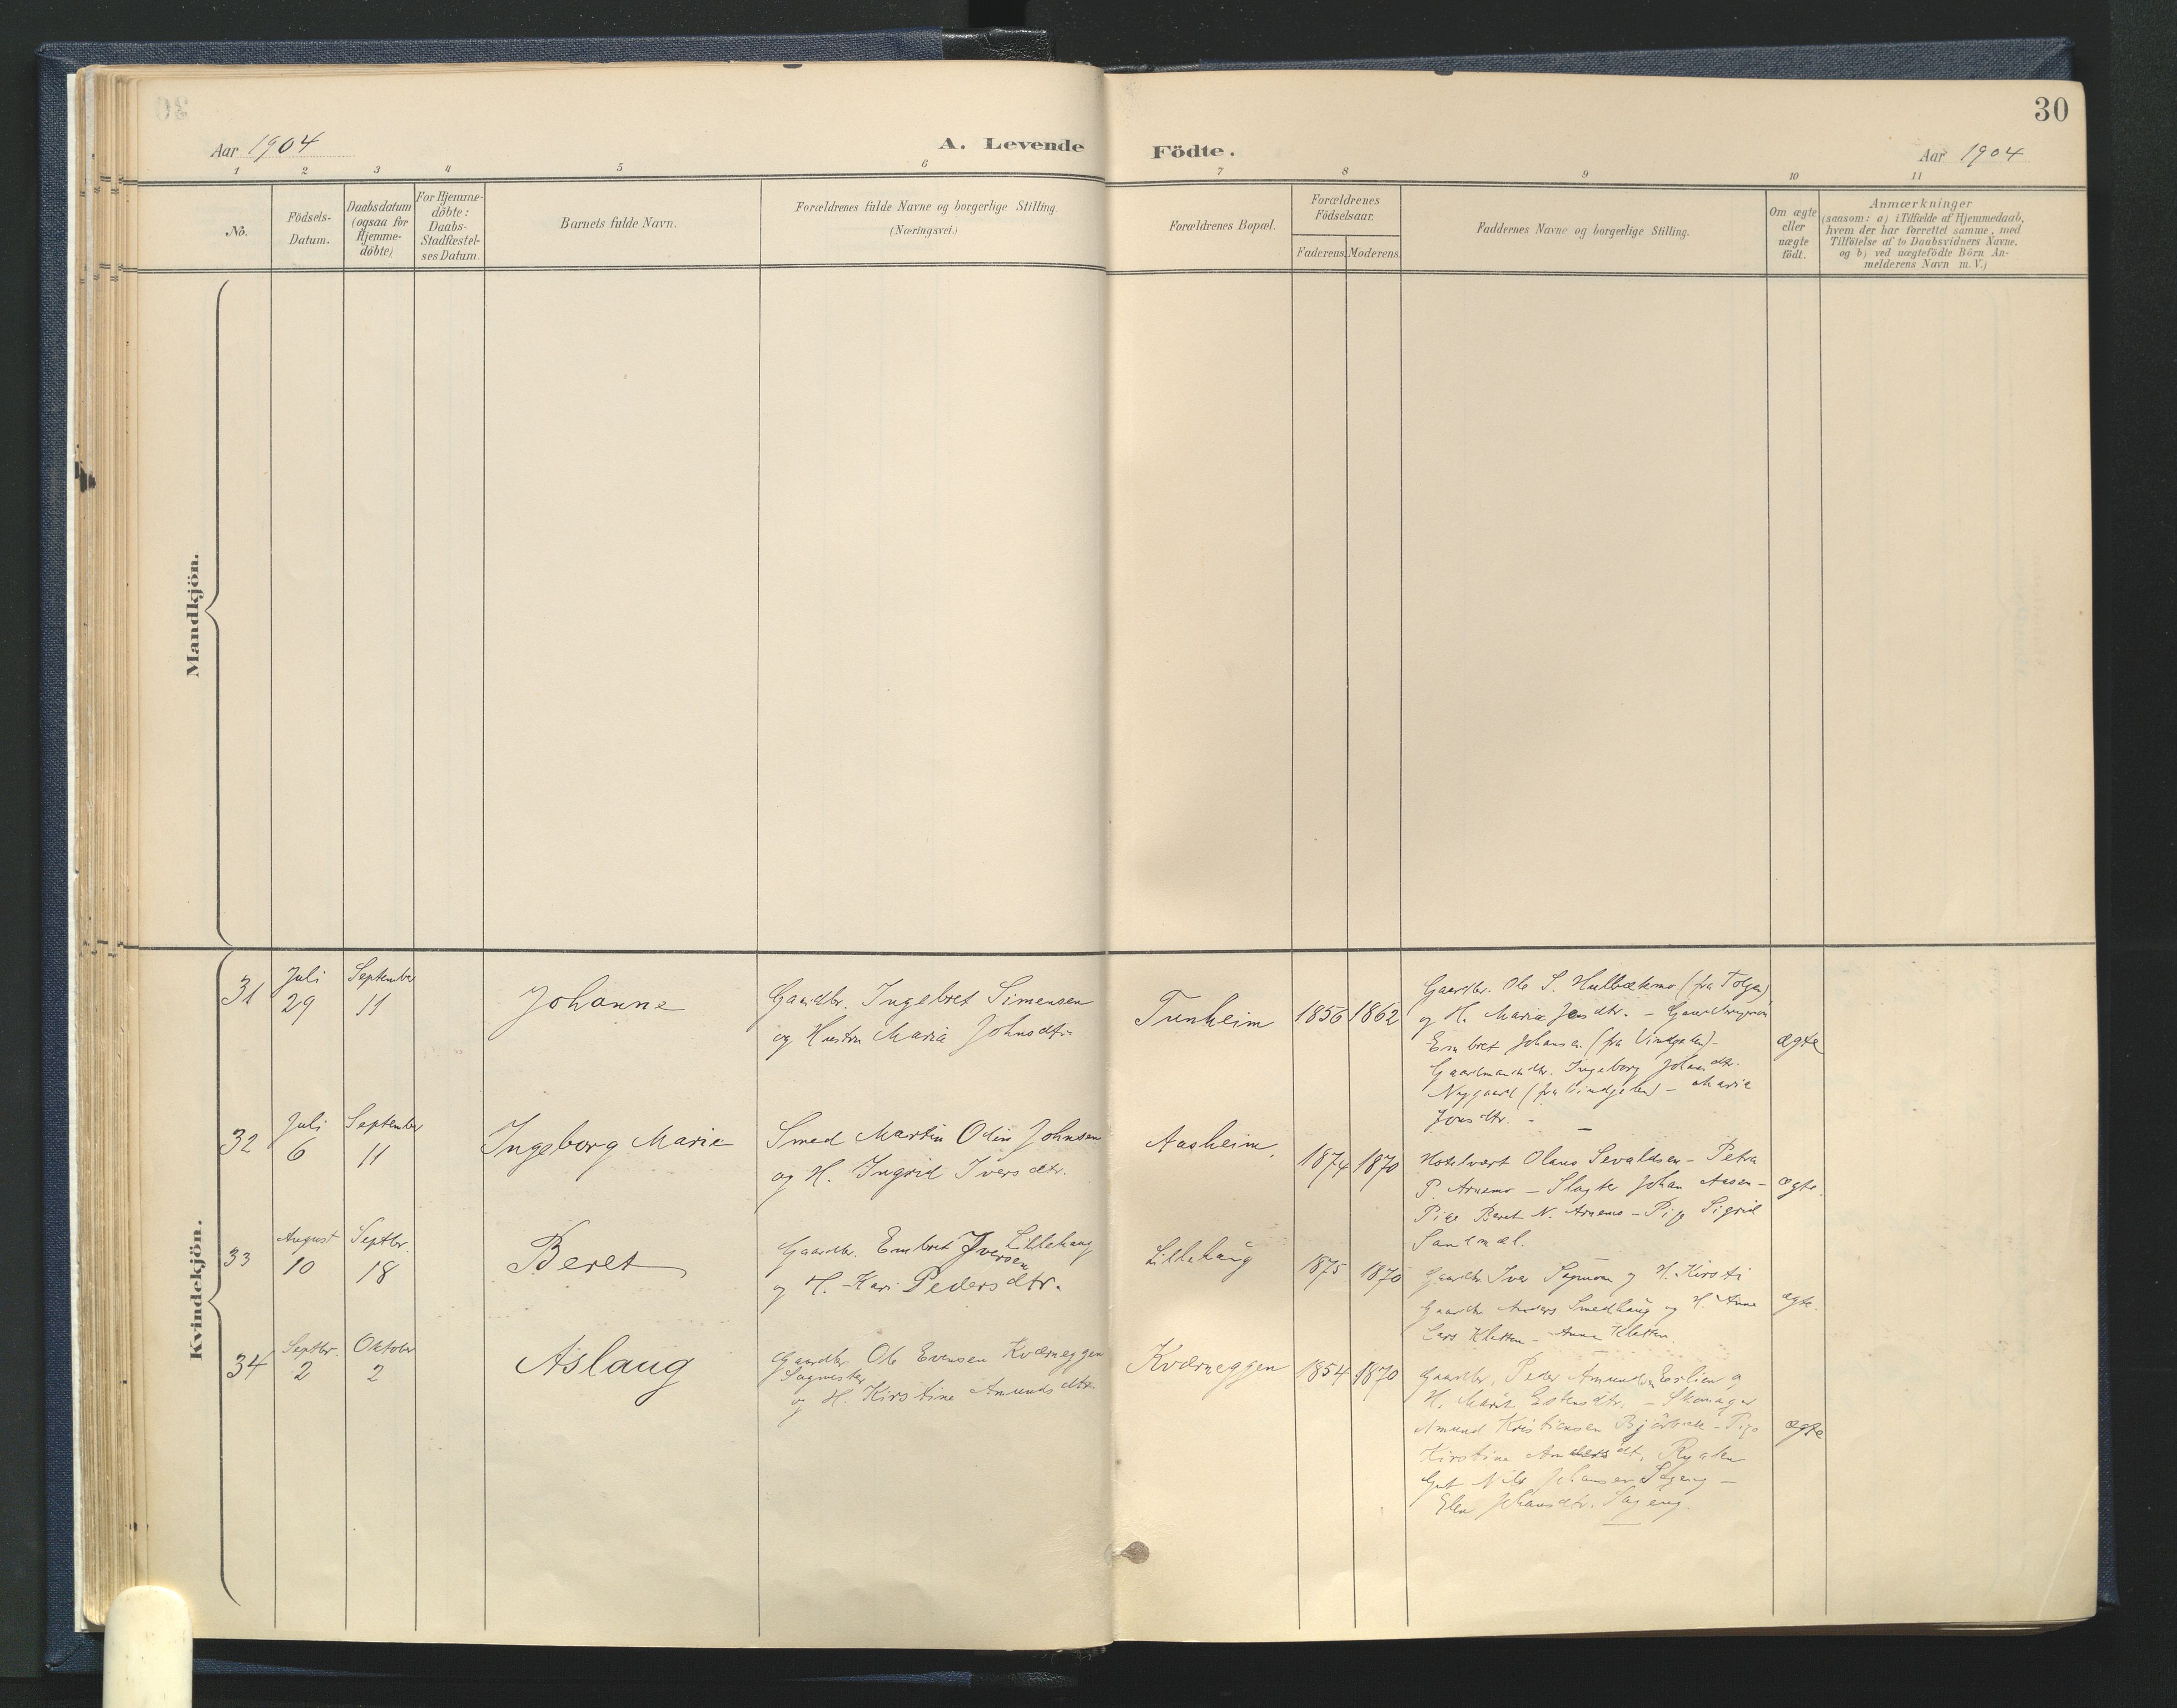 30
Aar 1904
A. Levende Födte.
Aar 1904
1 2 3 4 5 6 7 8 9 10 11
No.
Födsels-
Datum.
Daabsdatum
(ogsaa for
Hjemme-
döbte)
For Hjemme-
döbte:
Daabs-
Stadfæstel-
ses Datum.
Barnets fulde Navn.
Forældrenes fulde Navne og borgerlige Stilling.
(Næringsvei.)
Forældrenes Bopæl.
Forældrenes
Födselsaar.
Faderens. Moderens.
Faddernes Navne og borgerlige Stilling.
Om ægte
eller
uægte
födt.
Anmærkninger
(saasom: a) i Tilfælde af Hjemmedaab,
hvem der har forrettet samme, med
Tilföielse af to Daabsvidners Navne.
og b) ved uægtefödte Börn An-
melderens Navn m.V.)
Mandkjön.
Kvindekjön.
31
Juli
29
September
11
Johanne
Gaardbr. Ingebret Simensen
og Hustru Maria Johnsdtr.
Tunheim
1856
1862
Gaardbr. Ole S. Hulbækmo (fra Tolgen)
og H. Maria Jensdtr. –
Embret Johansen (fra Vindgelen) –
Gaardmandsdtr. Ingeborg Johansdtr.
Nygaard (fra Vindgelen) – Maria
Jonsdtr. –
ægte
32
Juli
6
September
11
Ingeborg Marie
Smed Martin Odin Johnsen
og H. Ingrid Iversdtr.
Aasheim.
1874
1870
Hotelvært Olaus Sevaldsen – Petra
P. Arnemo – Slagter Johan Aasen –
Pige Beret N. Arnemo – Pige Sigrid
Sandmæl.
ægte.
33
August
10
Septbr.
18
Beret
Gaardbr. Embret Iversen Lillehaug
og H. Kari Pedersdtr.
Lillehaug
1875
1870
Gaardbr. Iver Sagmoen og H. Kirsti
Gaardbr. Anders Smedhaug og H. Anna
Lars Kletten – Anna Kletten.
ægte.
34
Septbr.
2
Oktober
2
Aslaug
Gaardbr. Ole Evensen Kværneggen
Sagmester
og H. Kirstine Amundsdtr.
Kværneggen
1854
1870
Gaardbr. Peder Amundsen Eslien og
H. Marit Estensdtr. – Skomager
Amund Kristiansen – Pige
Kirstine
Gut Nils Johansen Sageng –
Elen Johansdtr. Sageng.
ægte